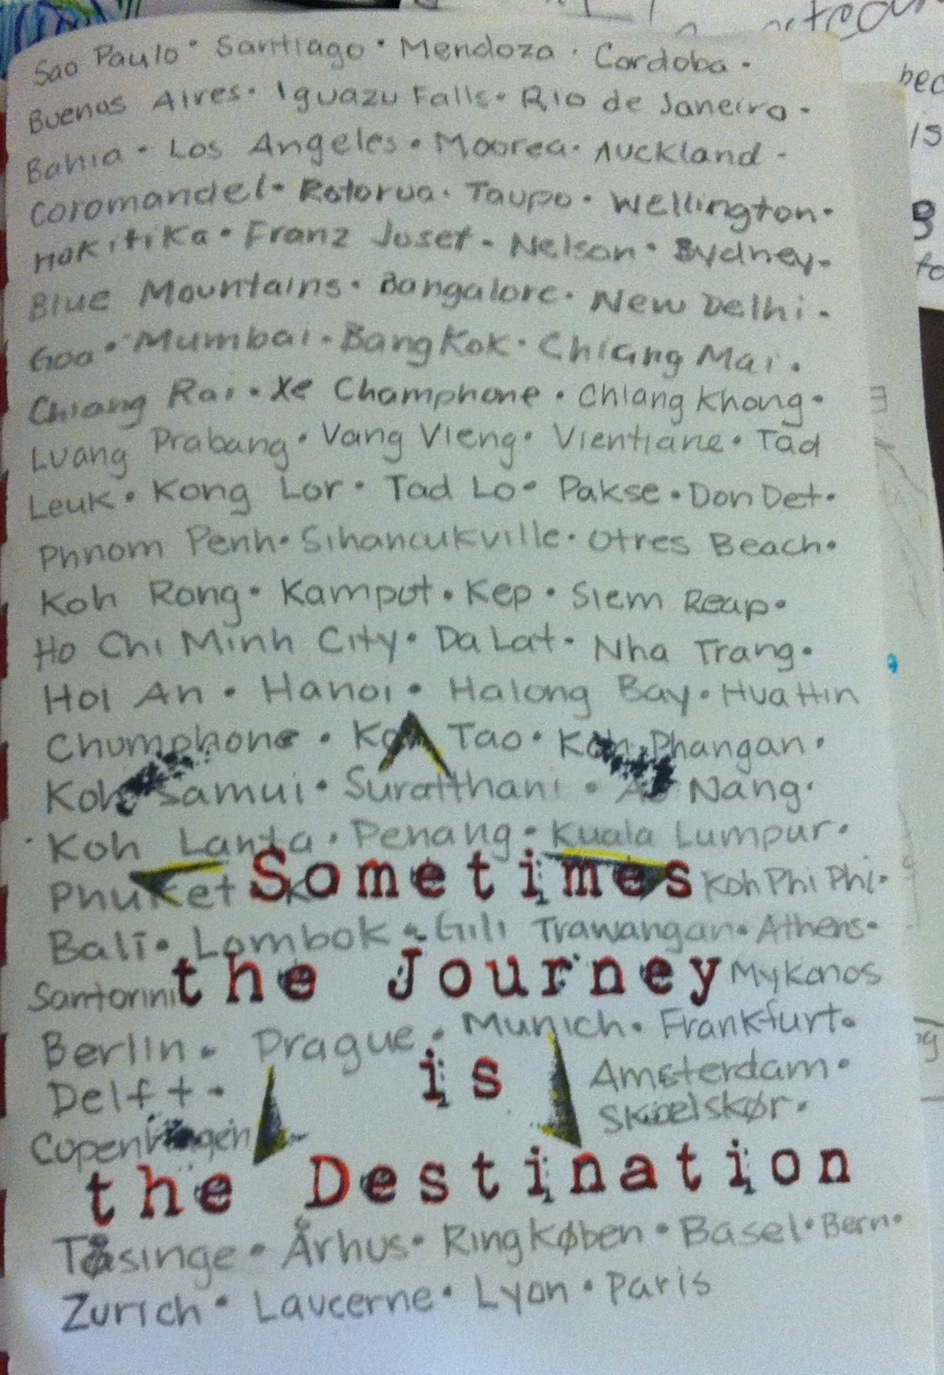 Sao Paulo · Santiago · Mendoza · Cordoba ·
Buenos Aires · Iguazu Falls · Rio de Janeiro ·
Bahia · Los Angeles · Moorea · Auckland ·
Coromandel · Rotorua · Taupo · Wellington ·
Hokitika · Franz Josef · Nelson · Sydney ·
Blue Mountains · Bangalore · New Delhi ·
Goa · Mumbai · Bangkok · Chiang Mai ·
Chiang Rai · Xe Champhone · Chiang Khong ·
Luang Prabang · Vang Vieng · Vientiane · Tad
Leuk · Kong Lor · Tad Lo · Pakse · Don Det ·
Phnom Penh · Sihanoukville · Otres Beach ·
Koh Rong · Kampot · Kep · Siem Reap ·
Ho Chi Minh City · Da Lat · Nha Trang ·
Hoi An · Hanoi · Halong Bay · Hua Hin
Chumphone · Koh Tao · Koh Phangan ·
Koh Samui · Suratthani · Ao Nang ·
Koh Lanta · Penang · Kuala Lumpur ·
Phuket Sometimes Koh Phi Phi ·
Bali · Lombok · Gili Trawangan · Athens ·
Santorini the Journey Mykonos
Berlin · Prague · Munich · Frankfurt ·
Delft · is Amsterdam ·
Copenhagen Skælskør ·
the Destination
Tåsinge · Århus · Ringkøben · Basel · Bern ·
Zurich · Laucerne · Lyon · Paris
bec
is